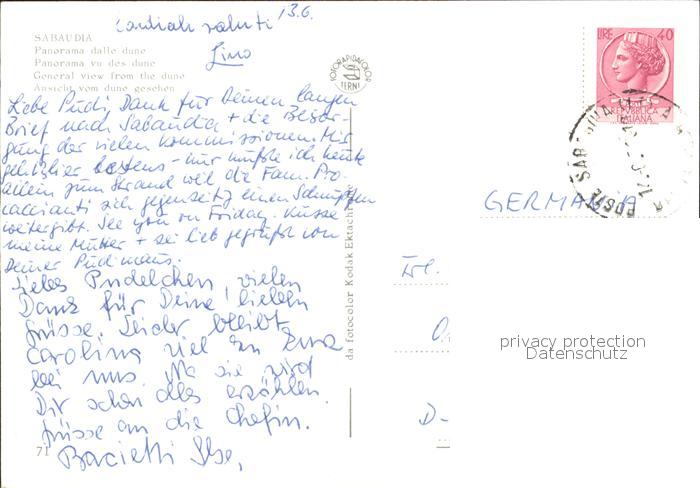 cordiali saluti 13.6.
Lino
SABAUDIA
Panorama dalle dune
Panorama vu des dune
General view from the dune
Ansicht vom dune gesehen
FOTORAPIDACOLOR
TERNI
LIRE 40
REPVBBLICA
ITALIANA
Liebe Pudi, Dank für Deinen langen
Brief nach Sabaudia + die Besor-
gung der vielen Kommissionen. Mir
geht's hier bestens - nur mußte ich heute
allein zum Strand weil die Fam. Pro-
caccianti sich gegenseitig einen Schnupfen
weitergibt. See you on Friday. Küsse
meine Mutter + sei lieb gegrüßt von
Deiner Pudimaus.
Liebes Pudelchen, vielen
Dank für Deine lieben
Grüsse. Leider bleibt
Carolina viel zu kurz
bei uns. Na sie wird
Dir schon alles erzählen.
Grüsse an die Chefin.
Bacietti Ilse,
71
da fotocolor Kodak Ektachrome
SABAUDIA
POSTE
GERMANIA
Frl.
D-
privacy protection
Datenschutz